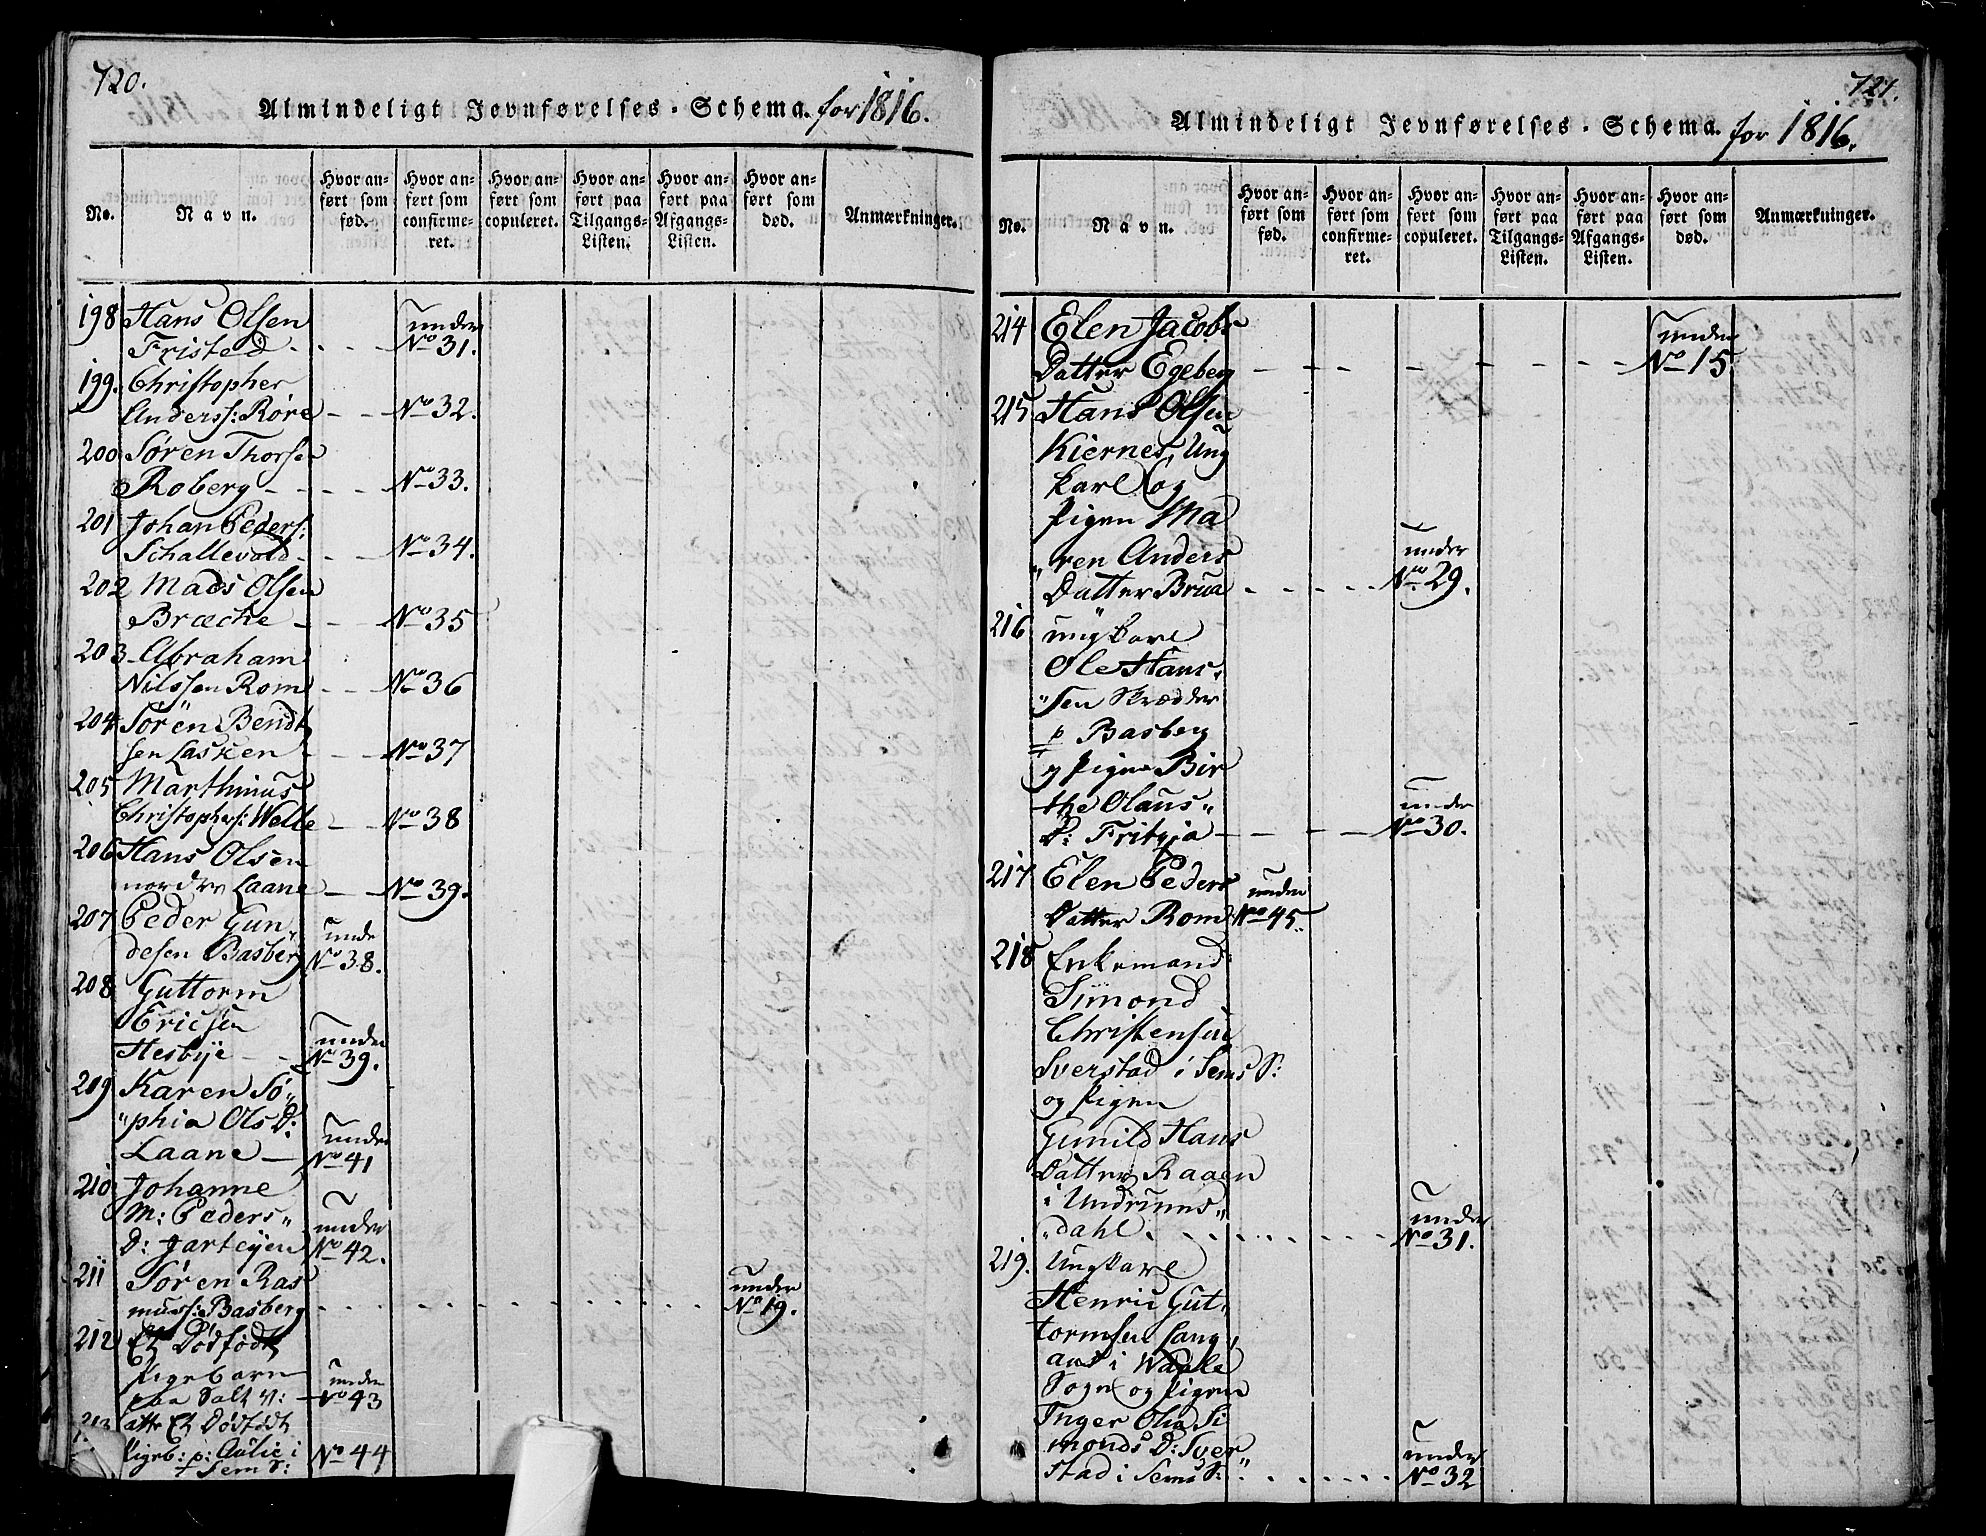 720.
Almindeligt Jevnførelses-Schema. for 1816.
No.
Navn.
Hvor anført som fød.
Hvor anført som confirmeret.
Hvor anført som copuleret.
Hvor anført paa Tilgangs-Listen.
Hvor anført paa Afgangs-Listen.
Hvor anført som død.
Anmærkninger.
198 Hans Olsen under
Fristed - - - No 31.
199. Christopher
Anderss: Røre - - No 32.
200 Søren Thorsen
Roberg - - - - No 33.
201 Johan Peders:
Schallevold - - No 34.
202 Mads Olsen
Bræche - - - No 35
203 Abraham
Nilssen Rom - - No 36
204 Søren Bendt
sen Lasken - - No 37
205 Marthinus
Christophers: Welle - - No 38
206 Hans Olsen
nordre Laane - - No 39.
207 Peder Gun- unde
desen Basberg No 38.
208 Guttorm
Ericsen under
Hesbye - - No 39.
209 Karen So"
"phia Ols D: under
Laane - No 41
210 Johanne
M: Peders" under
D: Jarteyen No 42.
211 Søren Ras under
muss: Basberg - - - - - - No 19.
212 Et Dødfødt
Pigebarn under
paa Solt N: - No 43
213 atter Et Dødfødt
Pigeb: p: Aulie i No 44
Sem S:
721.
Almindeligt Jevnførelses-Schema. for 1816.
No.
Navn.
Hvor anført som fød.
Hvor anført som confirmeret.
Hvor anført som copuleret.
Hvor anført paa Tilgangs-Listen.
Hvor anført paa Afgangs-Listen.
Hvor anført som død.
Anmærkninger.
214 Elen Jacobs under
Datter Egeberg - - - - - - - No 15.
215 Hans Olsen
Kiernes, Ung
karl og
Pigen Ma
"ren Anders under
Datter Brua - - - - No 29.
216 ungkarl
Ole Hans,
"sen Skrædder
p Basberg
og Pigen Bir
the Olaus" under
D: Fritzia - - - - No 30.
217 Elen Peders under
Datter Rom No 45.
218 Enkemand
Simond
Christensen
Sverstad i Sems S:
og Pigen
Gunild Hans
Datter Raaen
i Undrums" under
"dahl. - - - - - - No 31.
219. Ungkarl
Henric Gut,
tormsen Lang,
aas i Waale
Sogn og Pigen
Inger Olia Si
monds D: Sver" under
stad i Sems S: - - - - No 32